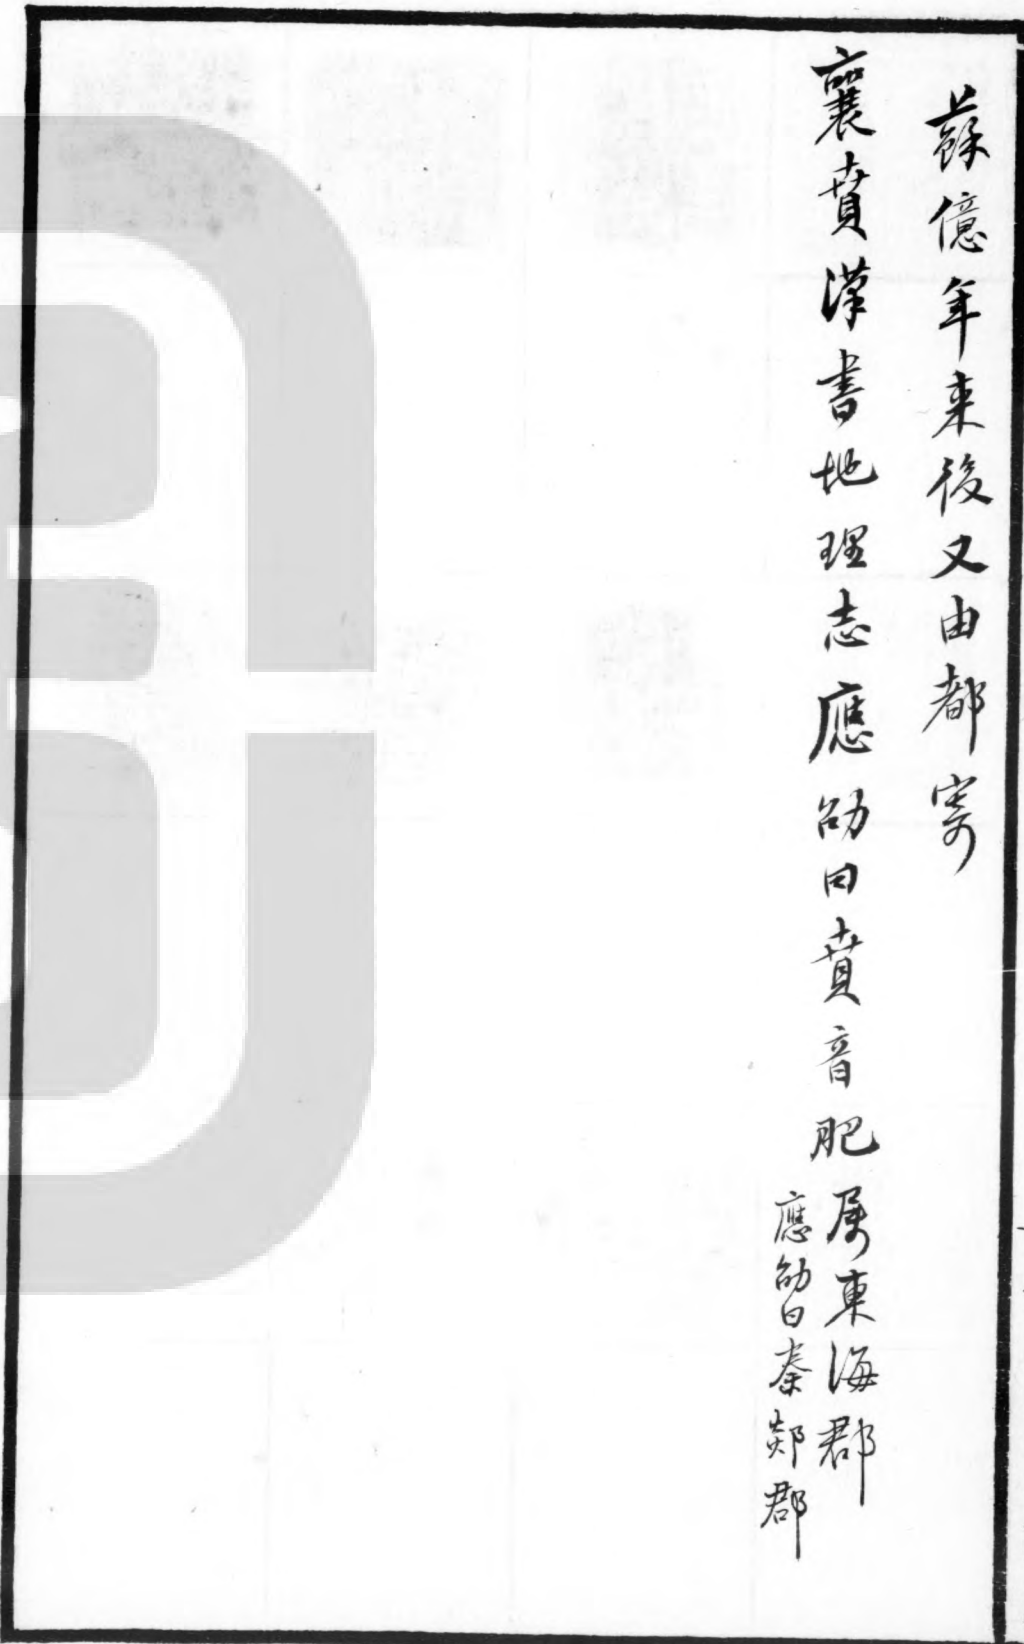 蘇億年来後又由都寄
襄賁漢書地理志應劭曰賁音肥属東海郡
應劭曰秦郯郡